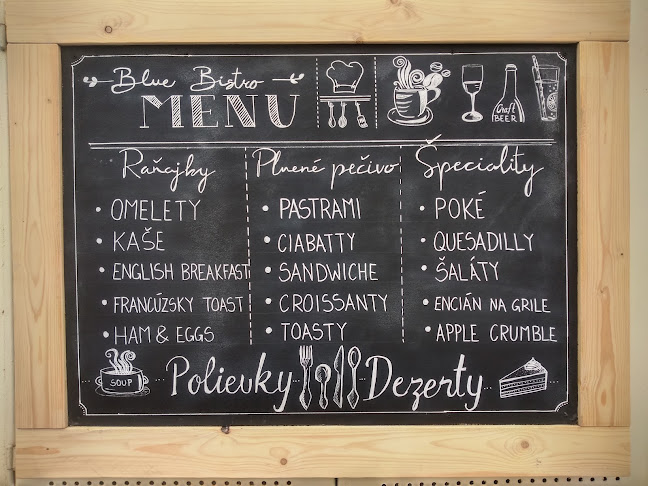 Blue Bistro
MENU
Craft
BEER
Raňajky
• OMELETY
• KAŠE
• ENGLISH BREAKFAST
• FRANCÚZSKY TOAST
• HAM & EGGS
Plnené pečivo
• PASTRAMI
• CIABATTY
• SANDWICHE
• CROISSANTY
• TOASTY
Špeciality
• POKÉ
• QUESADILLY
• ŠALÁTY
• ENCIÁN NA GRILE
• APPLE CRUMBLE
SOUP
Polievky
Dezerty